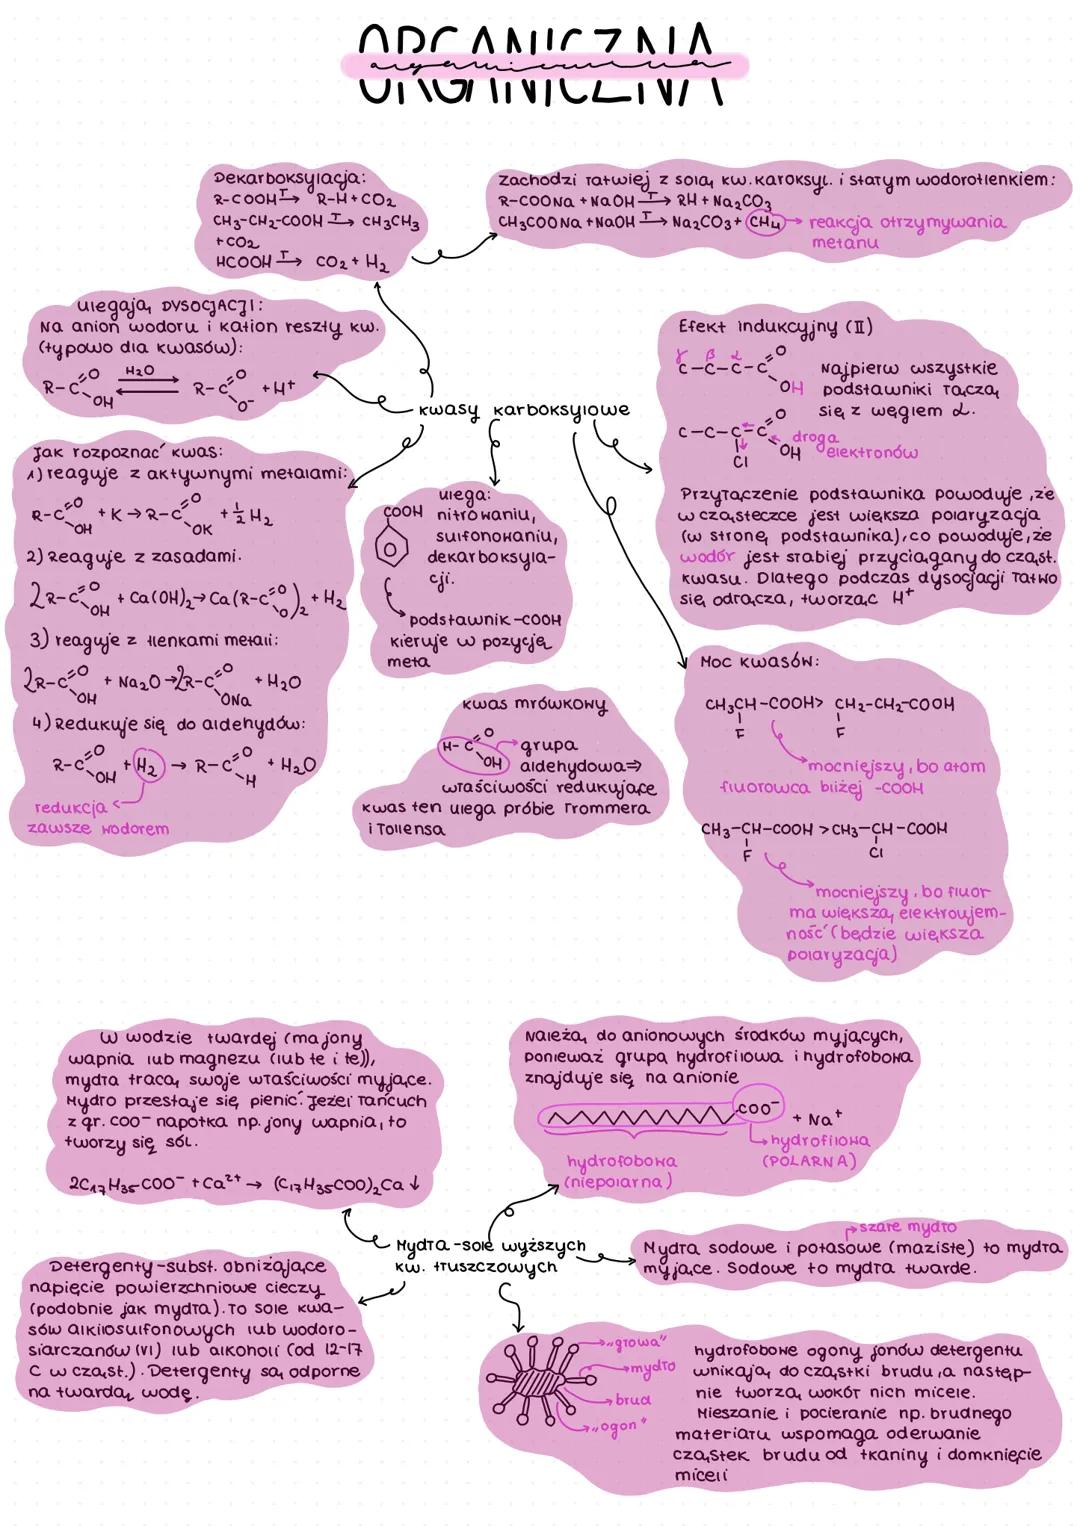 ORGANICZNA
organiczna
Dekarboksylacja:
R-COOH T→ R-H + CO2
CH3-CH2-COOH T→ CH3CH3
+ CO2
HCOOH T→ CO2 + H2
zachodzi łatwiej z solą kw. karoksyl. i stałym wodorotlenkiem:
R-COONa + NaOH T→ RH + Na2CO3
CH3COONa + NaOH T→ Na2CO3 + CH4 → reakcja otrzymywania
metanu
ulegają DYSOCJACJI:
Na anion wodoru i kation reszty kw.
(typowo dla kwasów):
H2O
R-C=O OH ⇌ R-C=O O⁻ + H+
kwasy karboksylowe
Efekt indukcyjny (II)
γ β α
C-C-C-C=O OH
Najpierw wszystkie
podstawniki łączą
się z węglem α.
C-C-C-C=O OH
Cl
droga
elektronów
Przyłączenie podstawnika powoduje, że
w cząsteczce jest większa polaryzacja
(w stronę podstawnika), co powoduje, że
wodór jest słabiej przyciągany do cząst.
kwasu. Dlatego podczas dysocjacji łatwo
się odrącza, tworząc H+
Jak rozpoznać kwas:
1) reaguje z aktywnymi metalami:
R-C=O OH + K → R-C=O OK + 1/2 H2
2) Reaguje z zasadami.
2R-C=O OH + Ca(OH)2 → Ca(R-C=O O)2 + H2
3) reaguje z tlenkami metali:
2R-C=O OH + Na2O → 2R-C=O ONa + H2O
4) Redukuje się do aldehydów:
R-C=O OH + H2 → R-C=O H + H2O
redukcja
zawsze wodorem
ulega:
COOH nitrowaniu,
sulfonowaniu,
dekarboksyla-
cji.
podstawnik -COOH
kieruje w pozycję
meta
kwas mrówkowy
H-C=O OH
grupa
aldehydowa ⇒
właściwości redukujące
kwas ten ulega próbie Trommera
i Tollensa
Moc kwasów:
CH3CH-COOH > CH2-CH2-COOH
F F
mocniejszy, bo atom
fluorowca bliżej -COOH
CH3-CH-COOH > CH3-CH-COOH
F Cl
mocniejszy, bo fluor
ma większą elektroujem-
ność (będzie większa
polaryzacja)
W wodzie twardej (ma jony
wapnia lub magnezu (lub te i te)),
mydła tracą swoje właściwości myjące.
Mydło przestaje się pienić. Jeżeli łańcuch
z gr. COO⁻ napotka np. jony wapnia, to
tworzy się sól.
2C17H35COO⁻ + Ca2+ → (C17H35COO)2Ca ↓
Należą do anionowych środków myjących,
ponieważ grupa hydrofilowa i hydrofobowa
znajduje się na anionie
COO⁻ + Na+
hydrofilowa
(POLARNA)
hydrofobowa
(niepolarna)
Mydła - sole wyższych
kw. tłuszczowych
szare mydło
Mydła sodowe i potasowe (maziste) to mydła
myjące. Sodowe to mydła twarde.
Detergenty - subst. obniżające
napięcie powierzchniowe cieczy
(podobnie jak mydła). To sole kwa-
sów alkilosulfonowych lub wodoro-
siarczanów (VI) lub alkoholi (od 12-17
C w cząst.). Detergenty są odporne
na twardą wodę.
„głowa"
mydło
brud
„ogon"
hydrofobowe ogony jonów detergentu
wnikają do cząstki brudu, a następ-
nie tworzą wokół nich micele.
Mieszanie i pocieranie np. brudnego
materiału wspomaga oderwanie
cząstek brudu od tkaniny i domknięcie
miceli